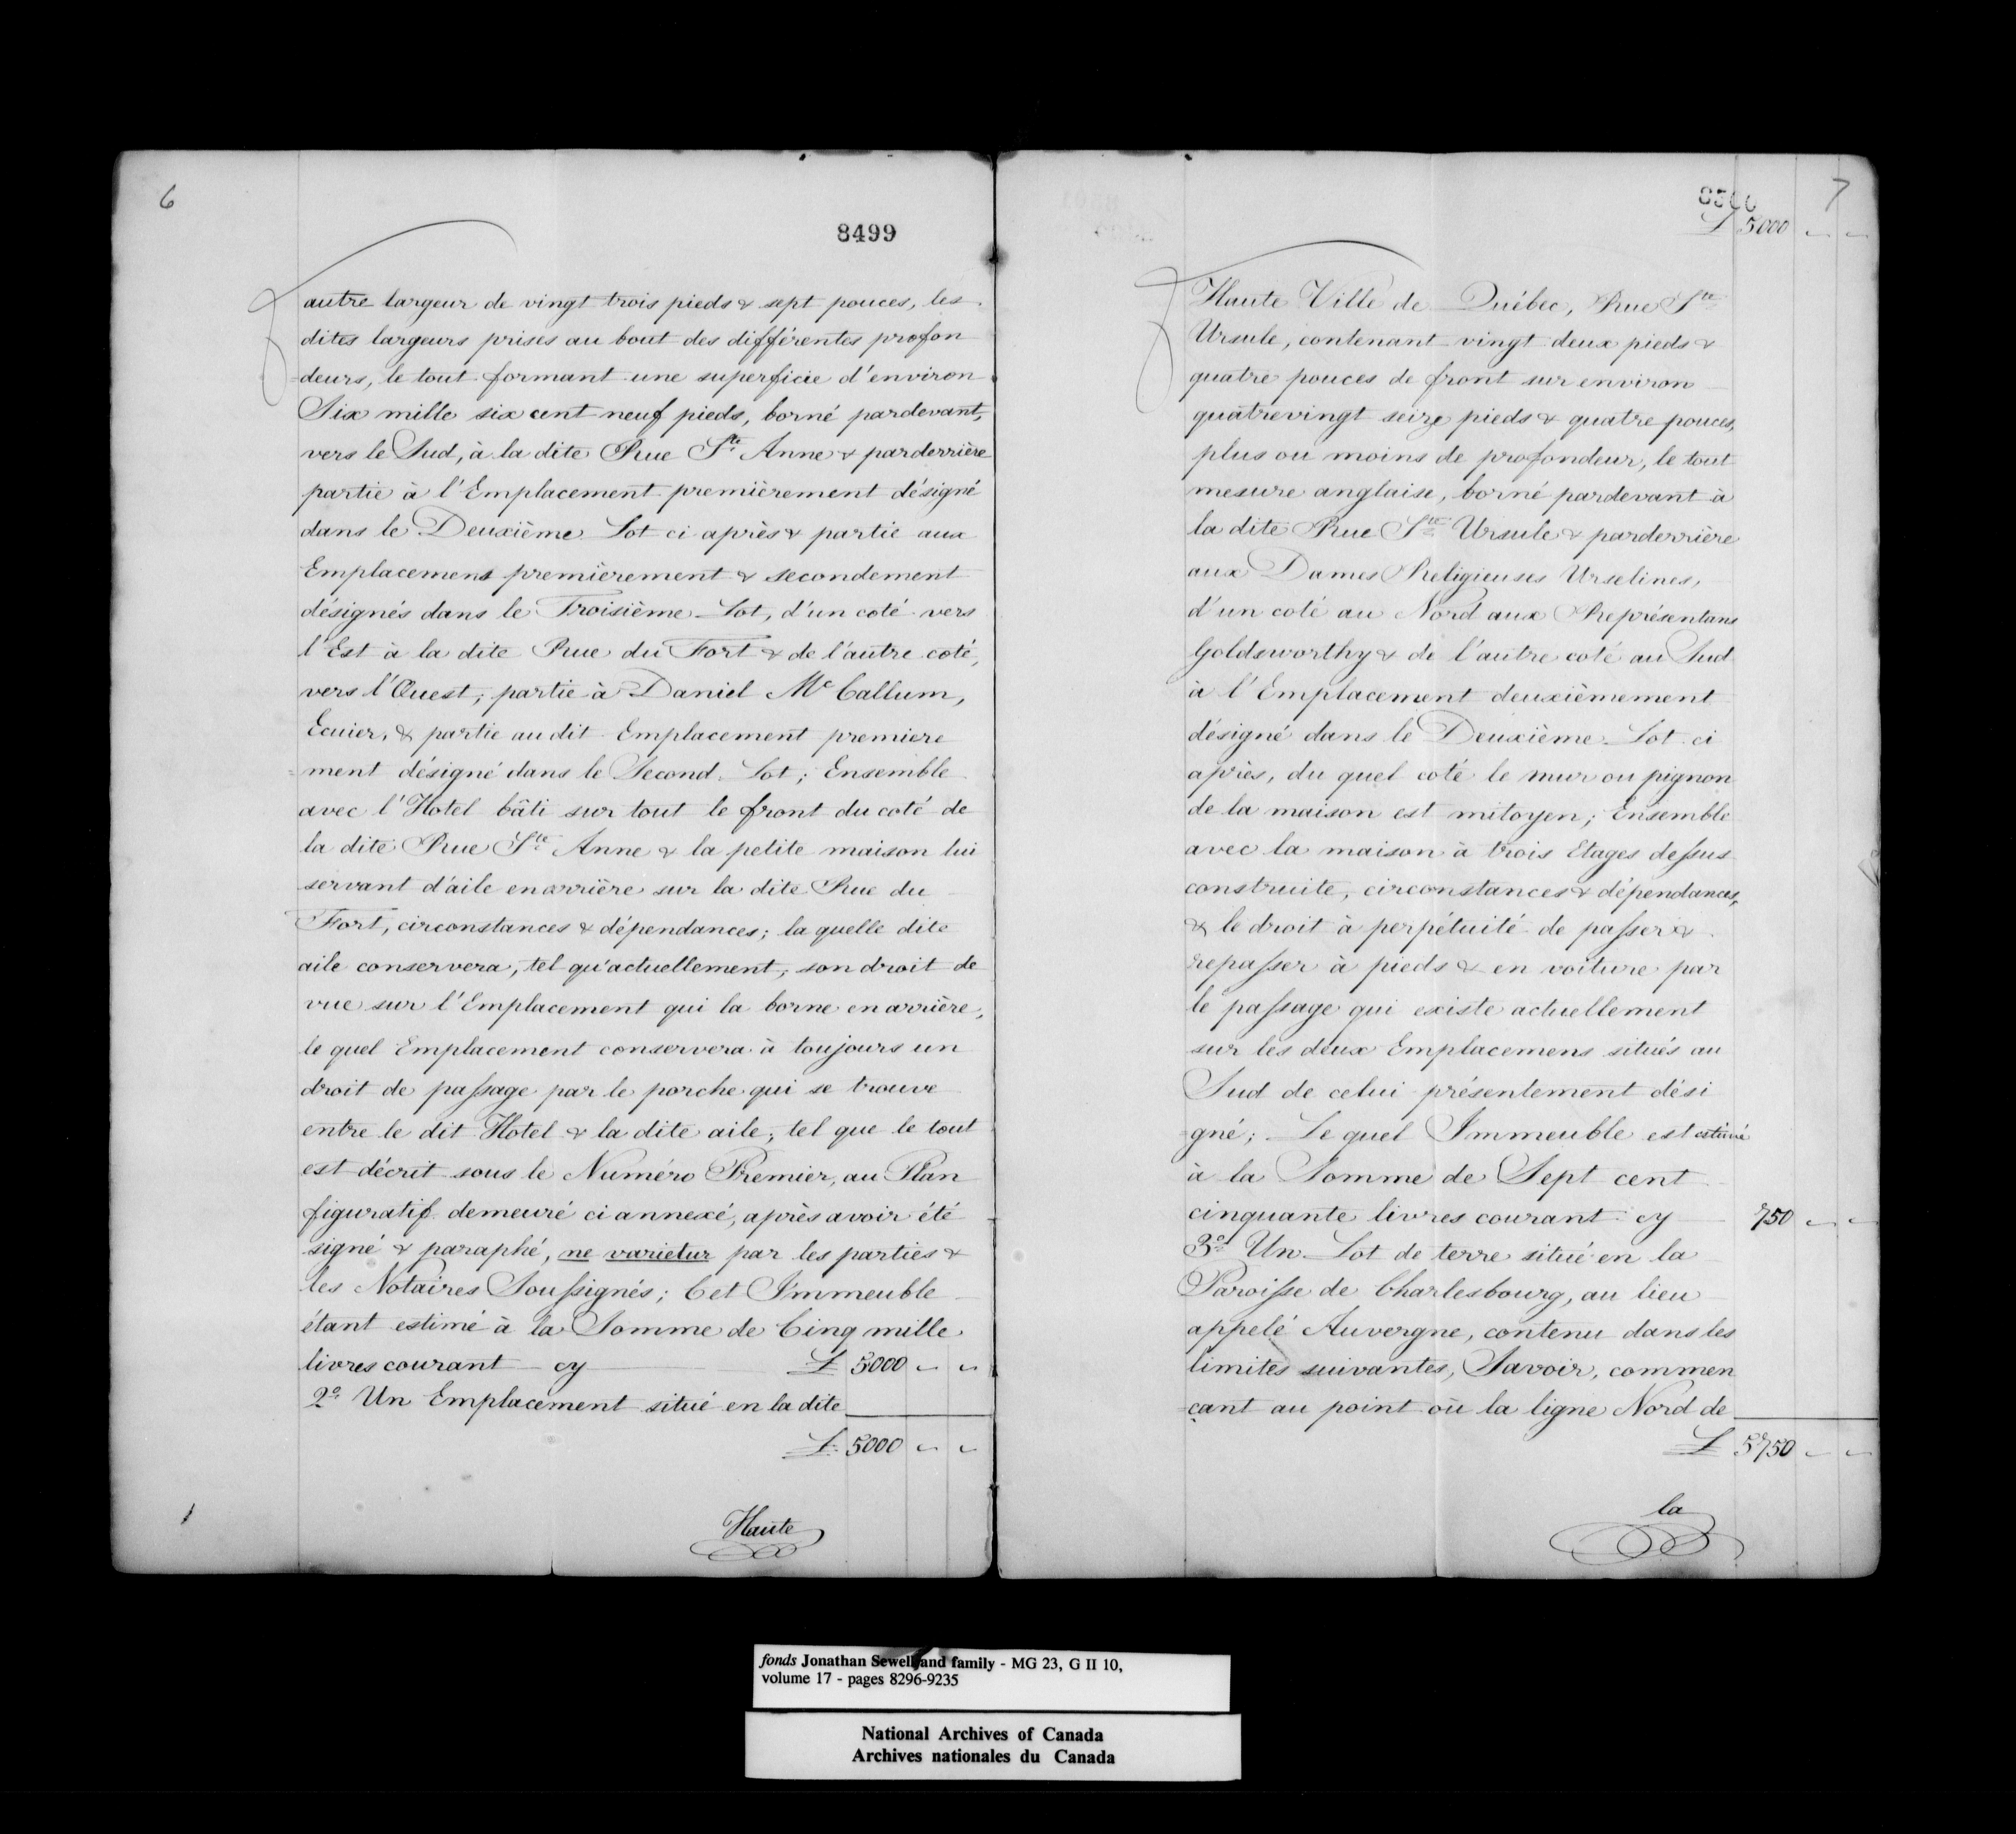 6
8499
autre largeur de vingt trois pieds & sept pouces, les
dites largeurs prises au bout des différentes profon
=deurs, le tout formant une superficie d'environ
Six mille six cent neuf pieds, borné pardevant,
vers le Sud, à la dite Rue Ste Anne & parderrière
partie à l'Emplacement premièrement désigné
dans le Deuxième Lot ci après & partie aux
Emplacemens premièrement & secondement
désignés dans le Troisième Lot, d'un coté vers
l'Est à la dite Rue du Fort & de l'autre coté,
vers l'Ouest; partie à Daniel Mc Callum,
Ecuier, & partie au dit Emplacement premiere
=ment désigné dans le Second Lot; Ensemble
avec l'Hotel bâti sur tout le front du coté de
la dite Rue Ste Anne & la petite maison lui
servant d'aile en arrière sur la dite Rue du
Fort, circonstances & dépendances; la quelle dite
aile conservera, tel qu'actuellement, son droit de
vue sur l'Emplacement qui la borne en arrière,
le quel Emplacement conservera à toujours un
droit de passage par le porche qui se trouve
entre le dit Hotel & la dite aile, tel que le tout
est décrit sous le Numéro Premier, au Plan
figuratif demeuré ci annexé, après avoir été
signé & paraphé, ne varietur par les parties &
les Notaires Soussignés; Cet Immeuble
étant estimé à la Somme de Cinq mille
livres courant cy £ 5000 " "
2o Un Emplacement situé en la dite
£ 5000 " "
Haute
7
8500
£ 5000 " "
Haute Ville de Québec, Rue Ste
Ursule, contenant vingt deux pieds &
quatre pouces de front sur environ
quatrevingt seize pieds & quatre pouces,
plus ou moins de profondeur, le tout
mesure anglaise, borné pardevant à
la dite Rue Ste Ursule & parderrière
aux Dames Religieuses Urselines,
d'un coté au Nord aux Représentans
Goldsworthy & de l'autre coté au Sud
à l'Emplacement deuxièmement
désigné dans le Deuxième Lot ci
après, du quel coté le mur ou pignon
de la maison est mitoyen; Ensemble
avec la maison à trois Etages dessus
construite, circonstances & dépendances,
& le droit à perpétuité de passer &
repasser à pieds & en voiture par
le passage qui existe actuellement
sur les deux Emplacemens situés au
Sud de celui présentement dési
=gné; Le quel Immeuble est estimé
à la Somme de Sept cent
cinquante livres courant cy 750 " "
3o Un Lot de terre situé en la
Paroisse de Charlesbourg, au lieu
appelé Auvergne, contenu dans les
limites suivantes, Savoir, commen
=çant au point où la ligne Nord de
£ 5750 " "
la
fonds Jonathan Sewell and family - MG 23, G II 10,
volume 17 - pages 8296-9235
National Archives of Canada
Archives nationales du Canada